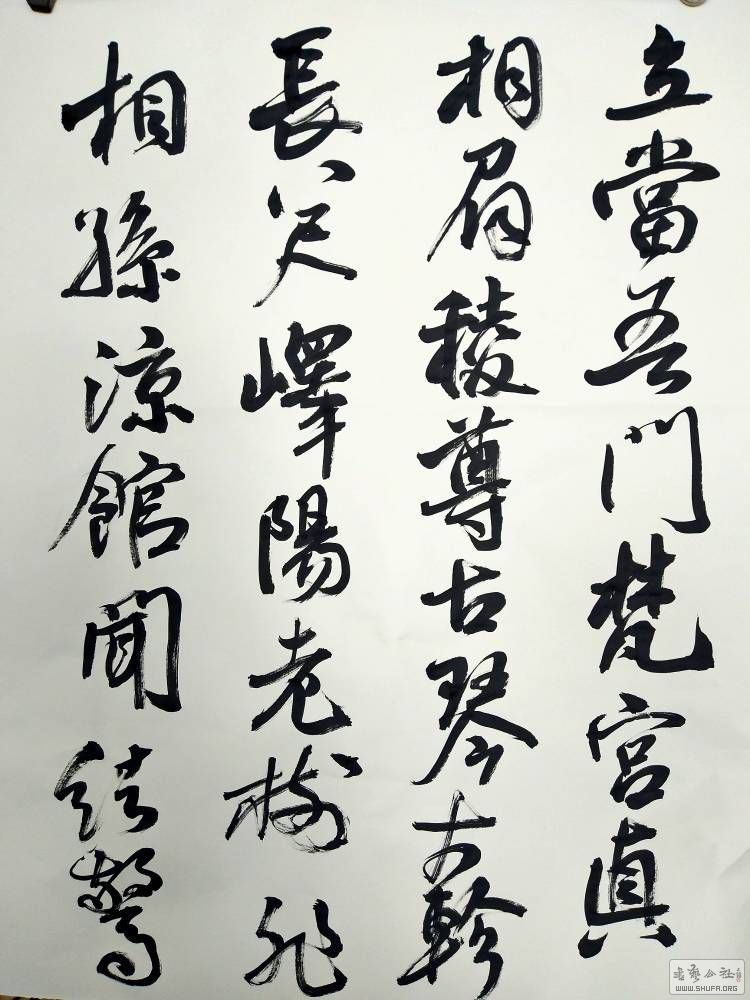 立當吾門梵宮真
相眉稜尊古琴大軫
長八尺嶧陽老樹非
桐孫涼館聞絃驚
书艺公社
WWW.SHUFA.ORG